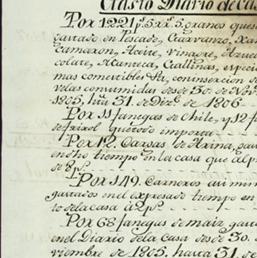 Gasto Diario de Cas
Por 1221 p.s 5 r.s 5. granos que se
gastado en Pescado, Garvanzo,
camaron, Aceite, vinagre, Azuc
colate, Manteca, Gallinas, especi
mas comercibles &a, con insercion de
velas consumidas desde 30 de Nov
1805, h.ta 31. de Diz.e de 1806
Por 11 fanegas de Chile, y 12 f
de frixol quedó su importe
Por 12. Cargas de Arina, gas
en dho tiempo en la casa que al p
de 8 p.s
Por 149. Carneros
gastados en el expresado tiempo en
te de la casa á 2 p.s
Por 68 fanegas de maiz, gas
en el Diario de la casa desde 30. d
viembre de 1805, hasta 31 de